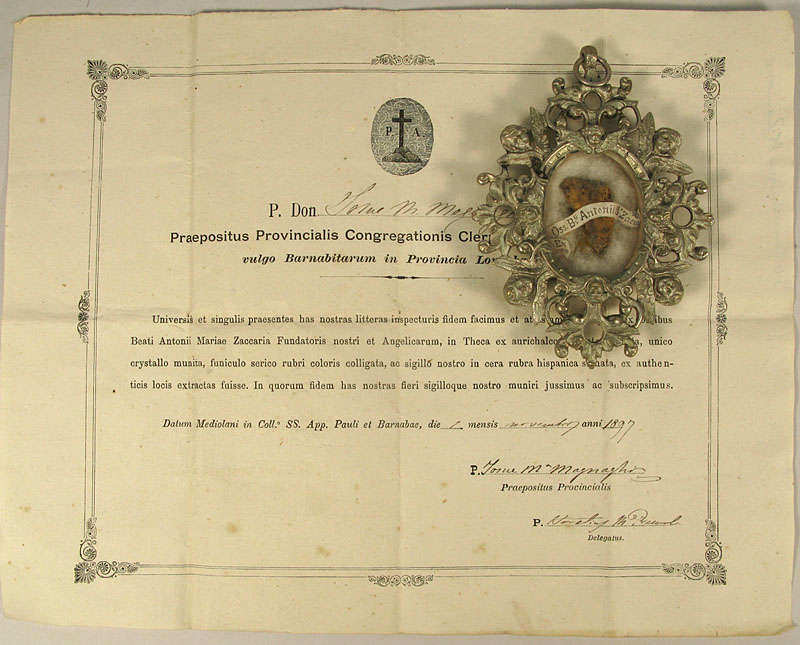 P A
P. Don. Josue M
Praepositus Provincialis Congregationis
vulgo Barnabitarum in Provincia
Universis et singulis praesentes has nostras litteras inspecturis fidem facimus et
Beati Antonii Mariae Zaccaria Fundatoris nostri et Angelicarum, in Theca ex aurichalco unico
crystallo munita, funiculo serico rubri coloris colligata, ac sigillo nostro in cera rubra hispanica signata, ex authen-
ticis locis extractas fuisse. In quorum fidem has nostras fieri sigilloque nostro muniri jussimus ac subscripsimus.
Datum Mediolani in Coll.º SS. App. Pauli et Barnabae, die mensis novembris anni 1897
P. Josue Mª Magnaghi
Praepositus Provincialis
P.
Delegatus.
Oss. B. Antonii Zacc